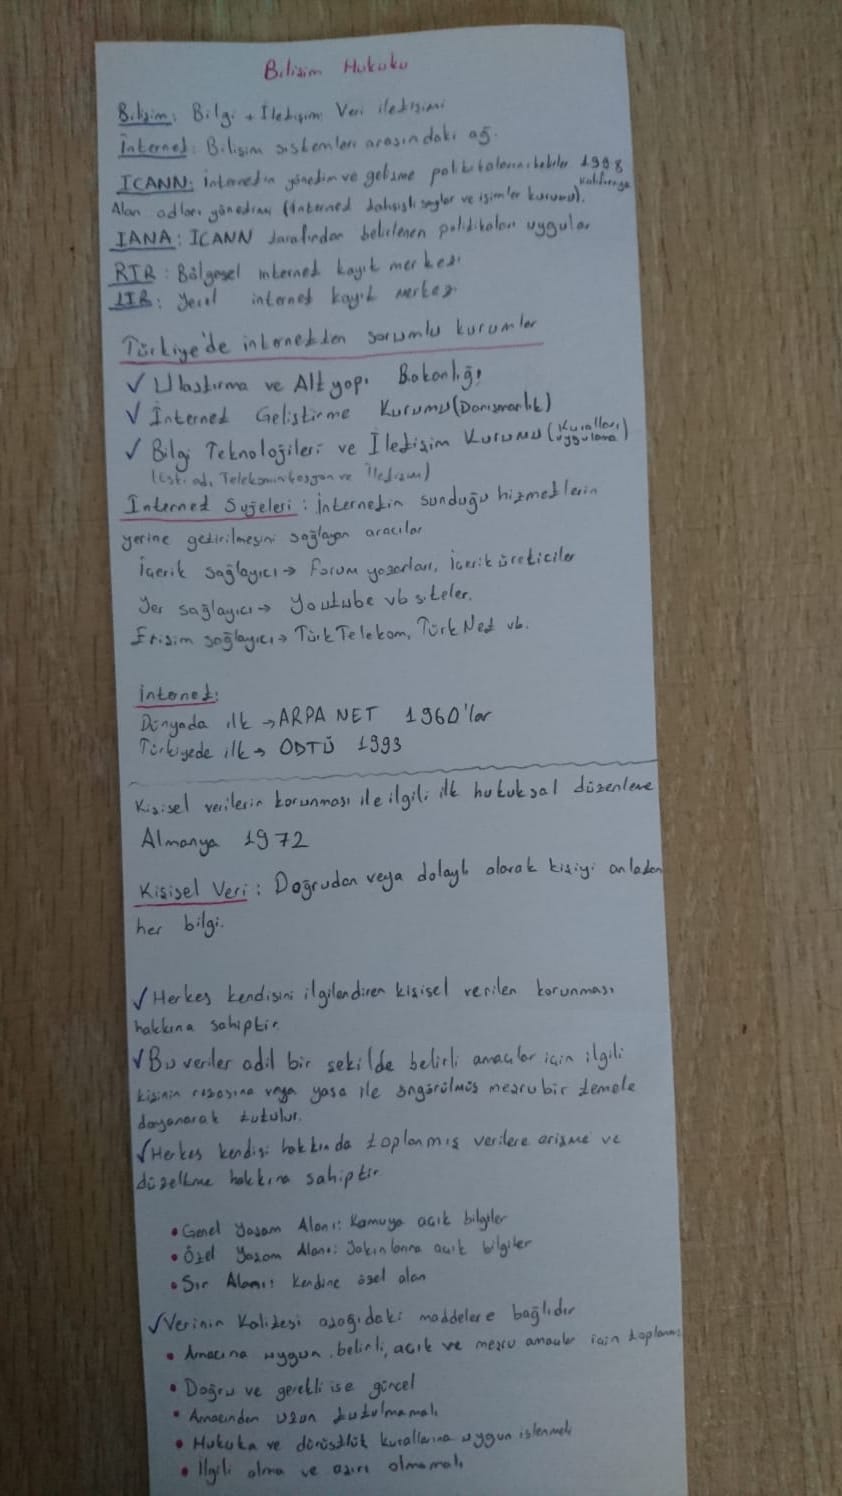 Bilişim Hukuku
Bilişim: Bilgi + İletişim Veri iletişimi
İnternet: Bilişim sistemleri arasındaki ağ.
ICANN: İnternetin yönetim ve gelişme politikalarını belirler 1998
Kaliforniya
Alan adları yönetimi (İnternet tahsisli sayılar ve isimler kurumu).
IANA: ICANN tarafından belirlenen politikaları uygular
RIR: Bölgesel internet kayıt merkezi
LIR: Yerel internet kayıt merkezi
Türkiye'de internetten sorumlu kurumlar
✓ Ulaştırma ve Altyapı Bakanlığı
✓ İnternet Geliştirme Kurumu (Danışmanlık)
✓ Bilgi Teknolojileri ve İletişim Kurumu (Kuralları uygulama)
(Eski ad, Telekominikasyon ve İletişim)
İnternet Sujeleri: İnternetin sunduğu hizmetlerin
yerine getirilmesini sağlayan aracılar
İçerik sağlayıcı → Forum yazarları, İçerik üreticiler
Yer sağlayıcı → Youtube vb siteler.
Erişim sağlayıcı → Türk Telekom, Türk Net vb.
İnternet:
Dünyada ilk → ARPA NET 1960'lar
Türkiyede ilk → ODTÜ 1993
Kişisel verilerin korunması ile ilgili ilk hukuksal düzenleme
Almanya 1972
Kişisel Veri: Doğrudan veya dolaylı olarak kişiyi anlatan
her bilgi.
✓ Herkes kendisini ilgilendiren kişisel verilen korunması
hakkına sahiptir.
✓ Bu veriler adil bir şekilde belirli amaçlar için ilgili
kişinin rızasına veya yasa ile öngörülmüş meşru bir temele
dayanarak tutulur.
✓ Herkes kendisi hakkında toplanmış verilere erişme ve
düzeltme hakkına sahiptir
• Genel Yaşam Alanı: Kamuya açık bilgiler
• Özel Yaşam Alanı: Yakınlarına açık bilgiler
• Sır Alanı: Kendine özel alan
✓ Verinin Kalitesi aşağıdaki maddelere bağlıdır
• Amacına uygun, belirli, açık ve meşru amaçlar için toplanmış
• Doğru ve gerekli ise güncel
• Amacından uzun tutulmamalı
• Hukuka ve dürüstlük kurallarına uygun işlenmeli
• İlgili olma ve aşırı olmamalı